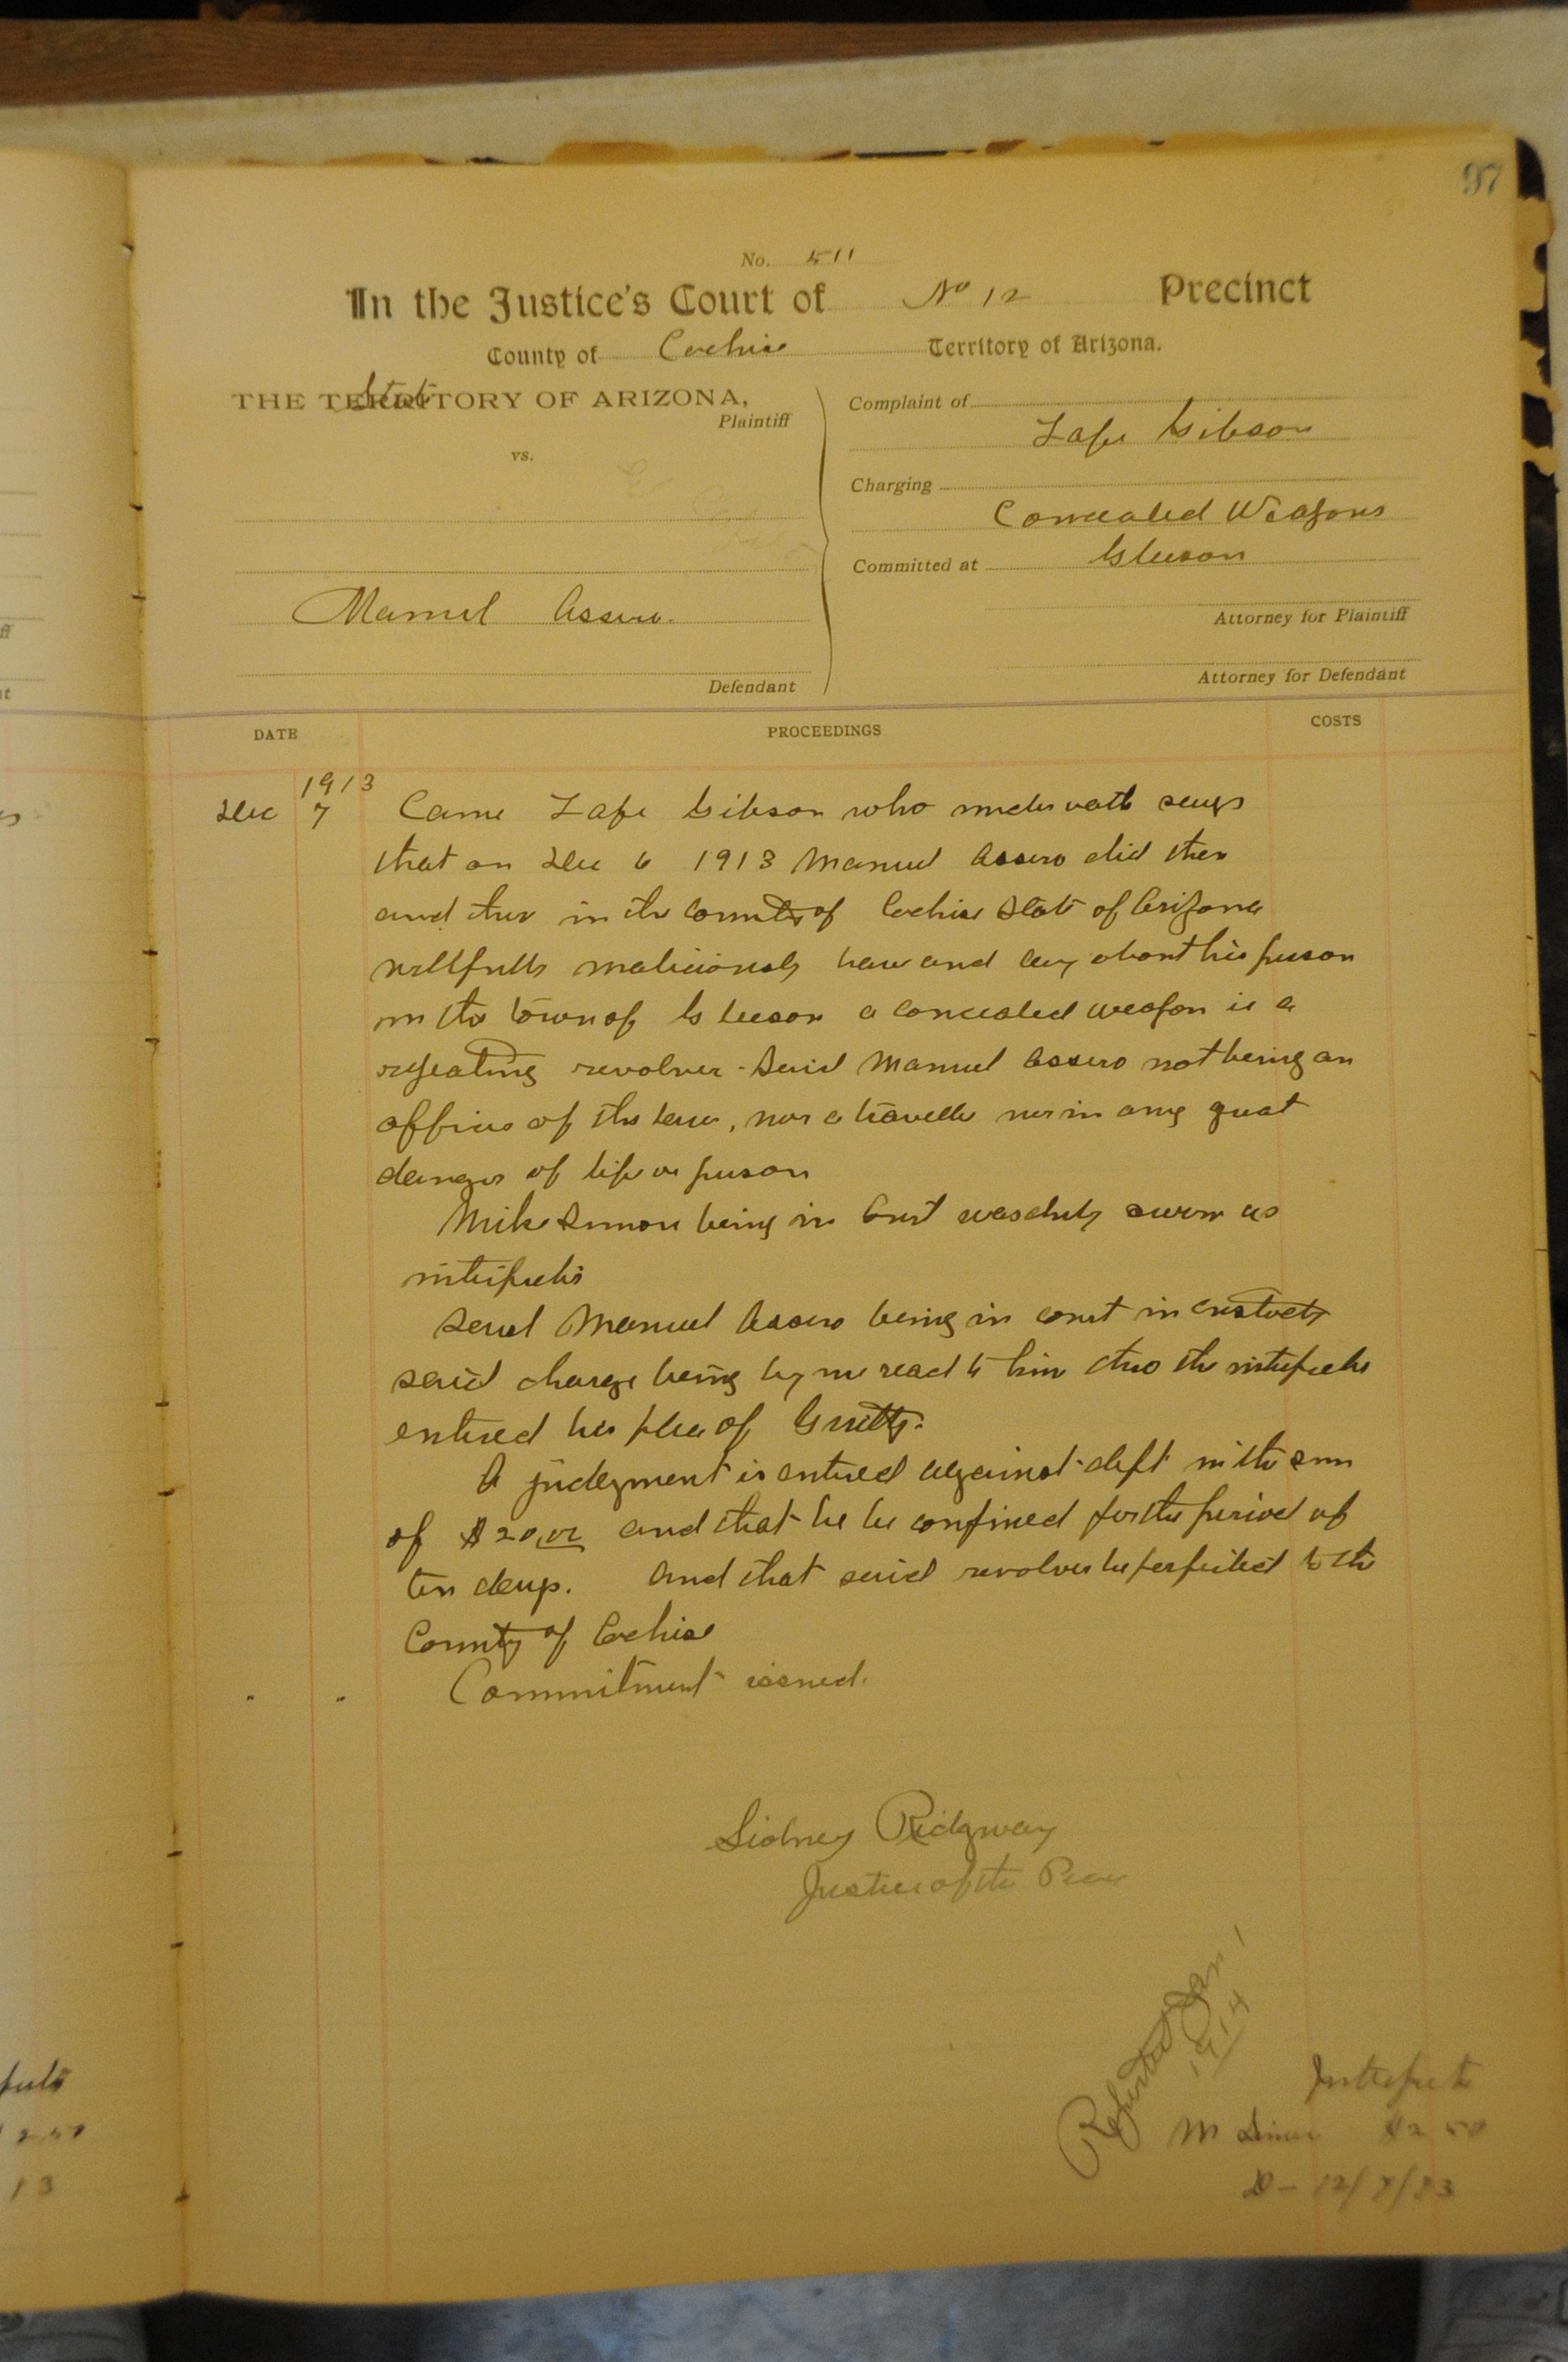 97
No. 511
In the Justice's Court of No 12 Precinct
County of Cochise Territory of Arizona.
State
THE TERRITORY OF ARIZONA,
Plaintiff
vs.
Manuel Assero.
Defendant
Complaint of
Lafe Gibson
Charging
Concealed Weapons
Committed at Gleeson
Attorney for Plaintiff
Attorney for Defendant
DATE PROCEEDINGS COSTS
1913
Dec 7 Came Lafe Gibson who under oath says
that on Dec 6 1913 Manuel Assero did then
and ther in the County of Cochise State of Arizona
willfully maliciously have and about his person
in the town of Gleeson a concealed weapon ie a
repeating revolver - Said Manuel Assero not being an
officer of the law, nor a traveller nor in any great
danger of life or person
Mike Simon being in Court was duly sworn as
interpreter
Said Manuel Assero being in court in custody
said charge being by me read to him thro the interpreter
entered his plea of Guilty.
A judgment is entered against deft in the sum
of $20.00 and that he be confined for the period of
ten days. And that said revolver be forfeited to the
County of Cochise
" " Commitment issued.
Sidney Ridgway
Justice of the Peace
Reported Jan 1
1914
Interpreter
M Simon $2 50
12/7/13